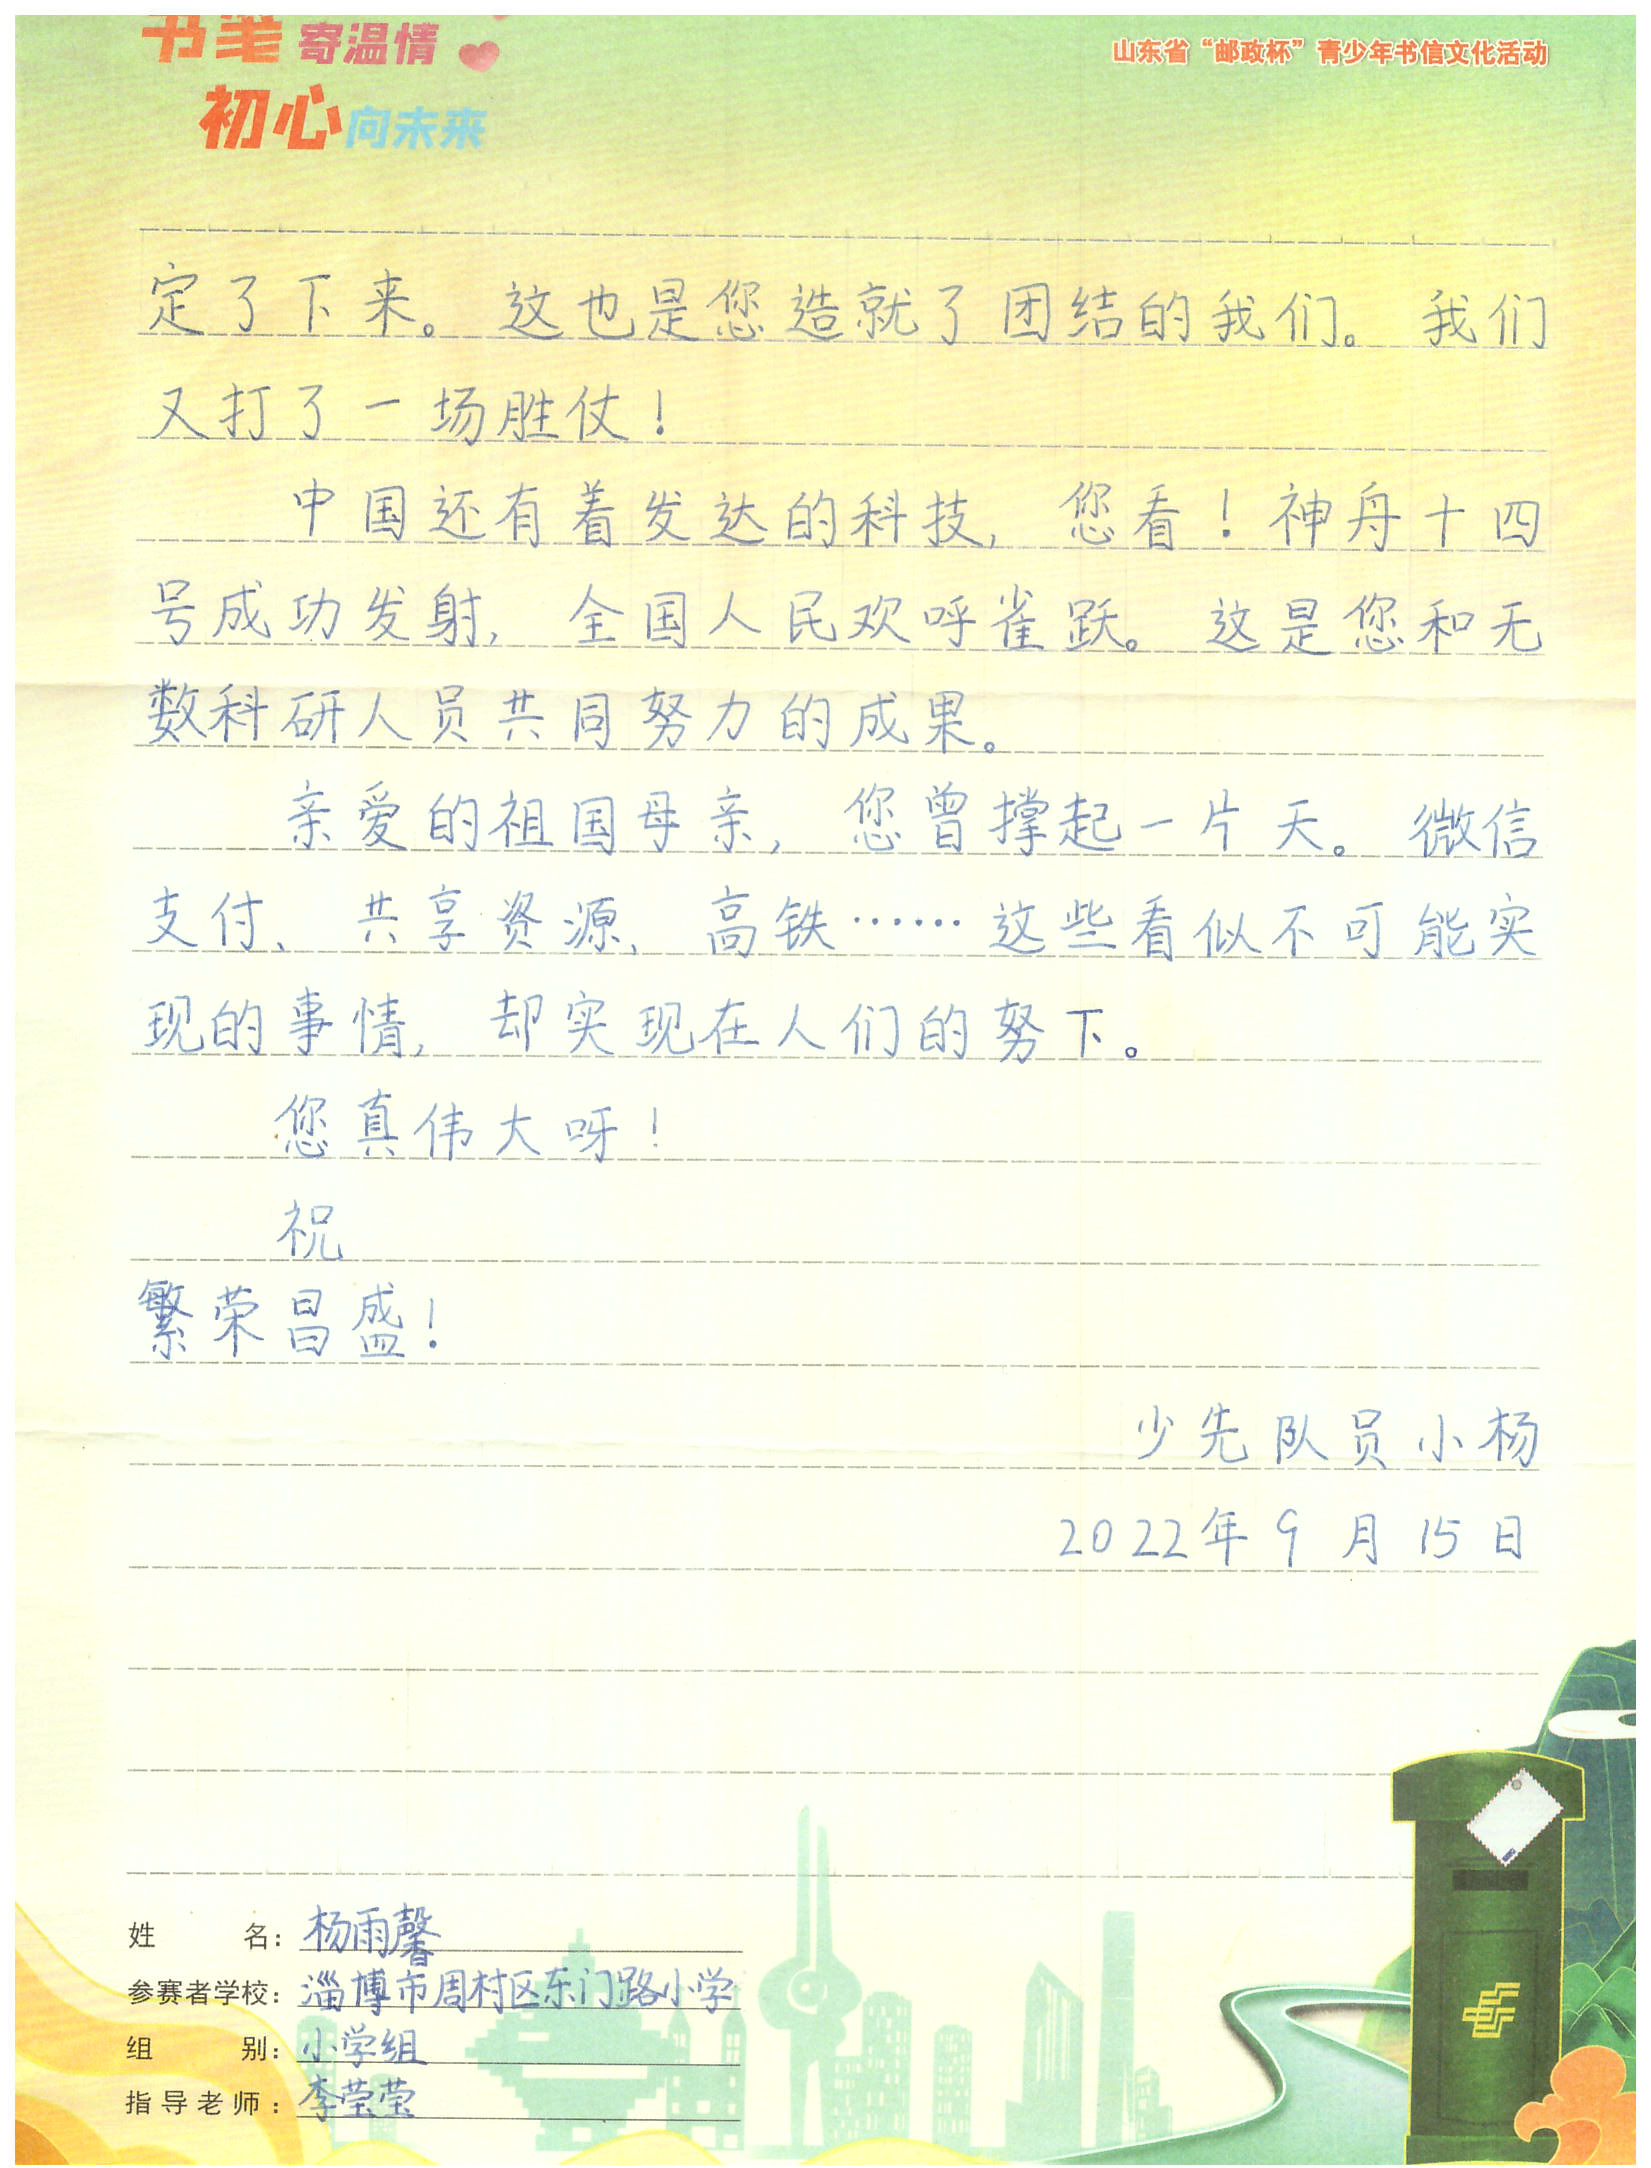 书笔寄温情
初心向未来
山东省“邮政杯”青少年书信文化活动
定了下来。这也是您造就了团结的我们。我们
又打了一场胜仗！
中国还有着发达的科技，您看！神舟十四
号成功发射，全国人民欢呼雀跃。这是您和无
数科研人员共同努力的成果。
亲爱的祖国母亲，您曾撑起一片天。微信
支付、共享资源、高铁……这些看似不可能实
现的事情，却实现在人们的努下。
您真伟大呀！
祝
繁荣昌盛！
少先队员小杨
2022年9月15日
姓名：杨雨馨
参赛者学校：淄博市周村区东门路小学
组别：小学组
指导老师：李莹莹